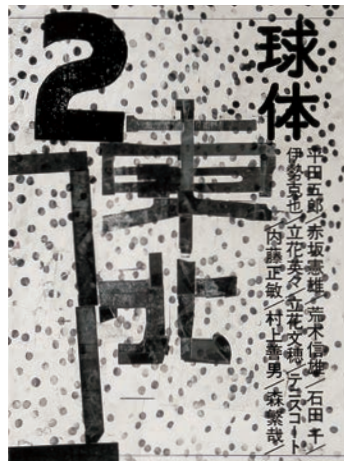 球体
2
東北
平田五郎/赤坂憲雄/荒木信雄/石田千/
伊勢克也/立花英久/立花文穂/テニスコート
内藤正敏/村上善男/森繁哉/